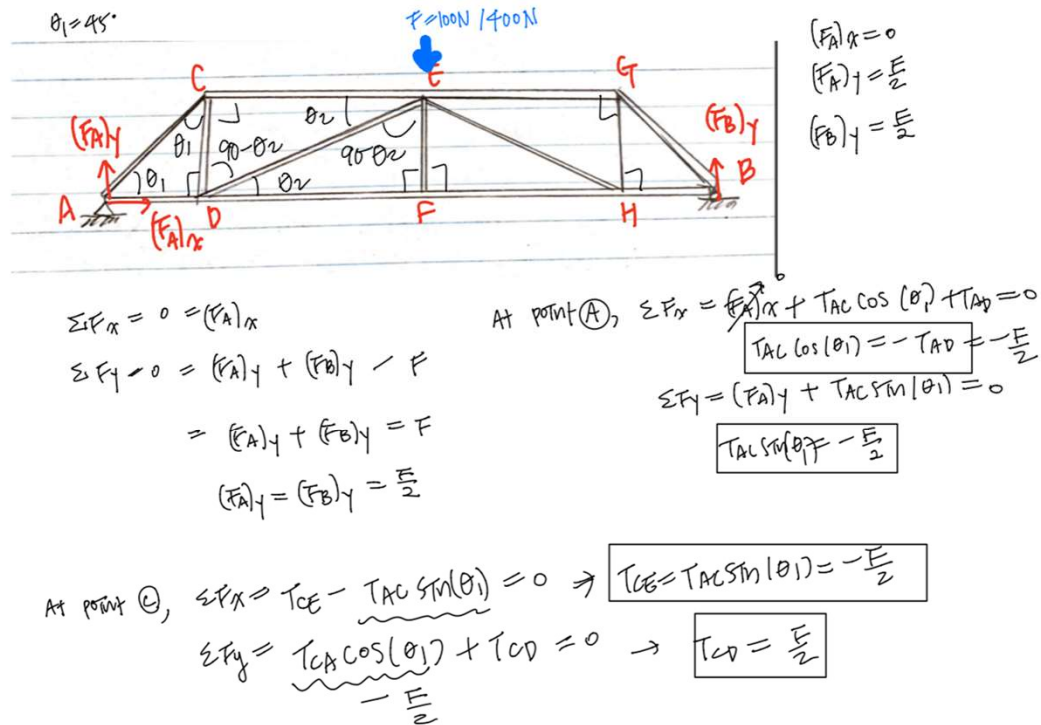 θ₁=45°
F=100N /400N
C
E
G
(F_A)y
θ₁
90-θ₂
θ₂
90-θ₂
(F_B)y
θ₁
θ₂
A
(F_A)x
D
F
H
B
(F_A)x=0
(F_A)y=F/2
(F_B)y=F/2
ΣFx = 0 =(F_A)x
ΣFy = 0 = (F_A)y + (F_B)y - F
= (F_A)y + (F_B)y = F
(F_A)y = (F_B)y = F/2
At point Ⓐ, ΣFx = (F_A)x + T_AC cos (θ₁) + T_AD = 0
0
T_AC cos(θ₁) = - T_AD = - F/2
ΣFy = (F_A)y + T_AC sin(θ₁) = 0
T_AC sin(θ₁) = - F/2
At point Ⓒ, ΣFx = T_CE - T_AC sin(θ₁) = 0 → T_CE = T_AC sin(θ₁) = - F/2
ΣFy = T_CA cos(θ₁) + T_CD = 0 → T_CD = F/2
- F/2